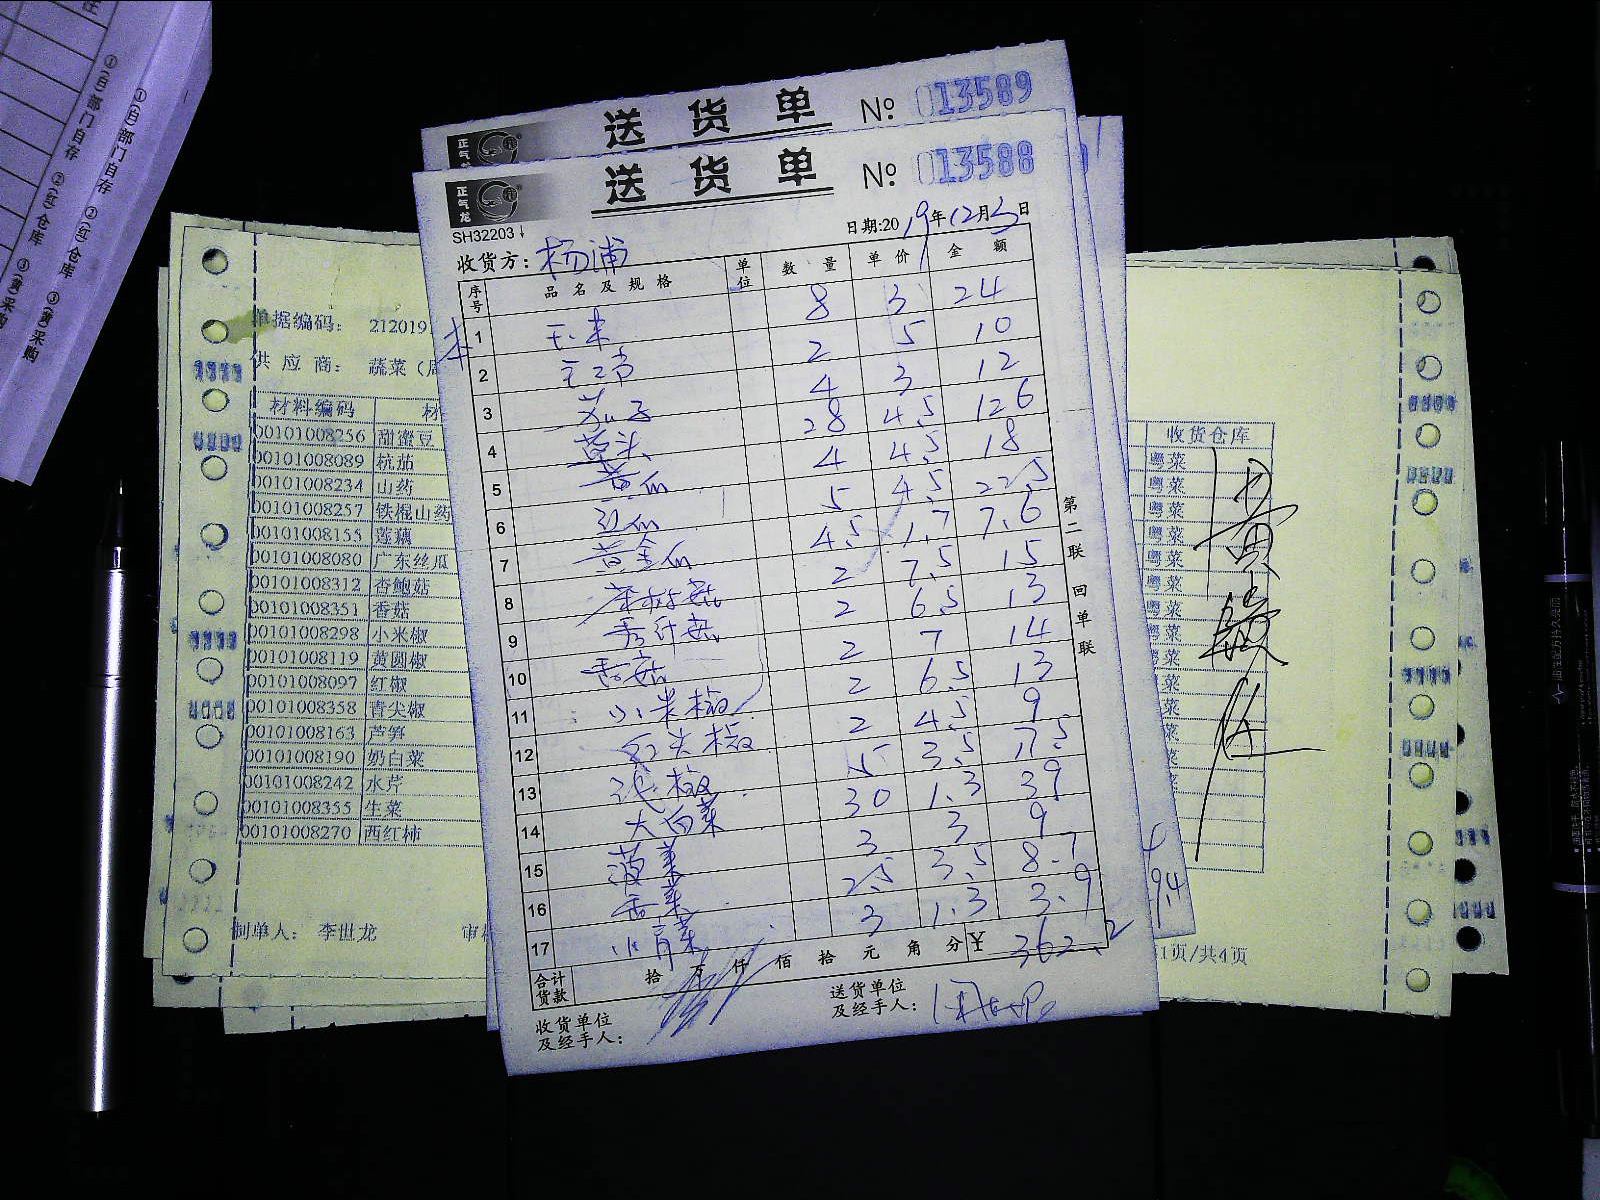 ①(白)部门自存 ②(红)仓库 ③(黄)采购
①(白)部门自存 ②(红)仓库 ③(黄)采购
送货单 № 013589
正气龙
送货单 № 013588
SH32203
日期:2019年12月3日
收货方: 杨浦
序号 品名及规格 单位 数量 单价 金额
1 玉米 8 3 24
2 2 5 10
3 茄子 4 3 12
4 草头 28 4.5 126
5 黄瓜 4 4.5 18
6 5 4.5 22.5
7 黄金瓜 4.5 1.7 7.6
8 茶树菇 2 7.5 15
9 秀针菇 2 6.5 13
10 香菇 2 7 14
11 小米椒 2 6.5 13
12 红尖椒 2 4.5 9
13 泡椒 5 3.5 17.5
14 大白菜 30 1.3 39
15 菠菜 3 3 9
16 香菜 2.5 3.5 8.7
17 小青菜 3 1.3 3.9
合计货款 拾 万 仟 佰 拾 元 角 分 ¥ 362.2
收货单位及经手人:
送货单位及经手人:
第二联 回单联
单据编码: 212019
供应商: 蔬菜(周
材料编码 材
00101008256 甜蜜豆
00101008089 杭茄
00101008234 山药
00101008257 铁棍山药
00101008155 莲藕
00101008080 广东丝瓜
00101008312 杏鲍菇
00101008351 香菇
00101008298 小米椒
00101008119 黄圆椒
00101008097 红椒
00101008358 青尖椒
00101008163 芦笋
00101008190 奶白菜
00101008242 水芹
00101008355 生菜
00101008270 西红柿
制单人: 李世龙 审
收货仓库
粤菜
粤菜
粤菜
粤菜
粤菜
粤菜
粤菜
粤菜
粤菜
粤菜
9.4
1页/共4页